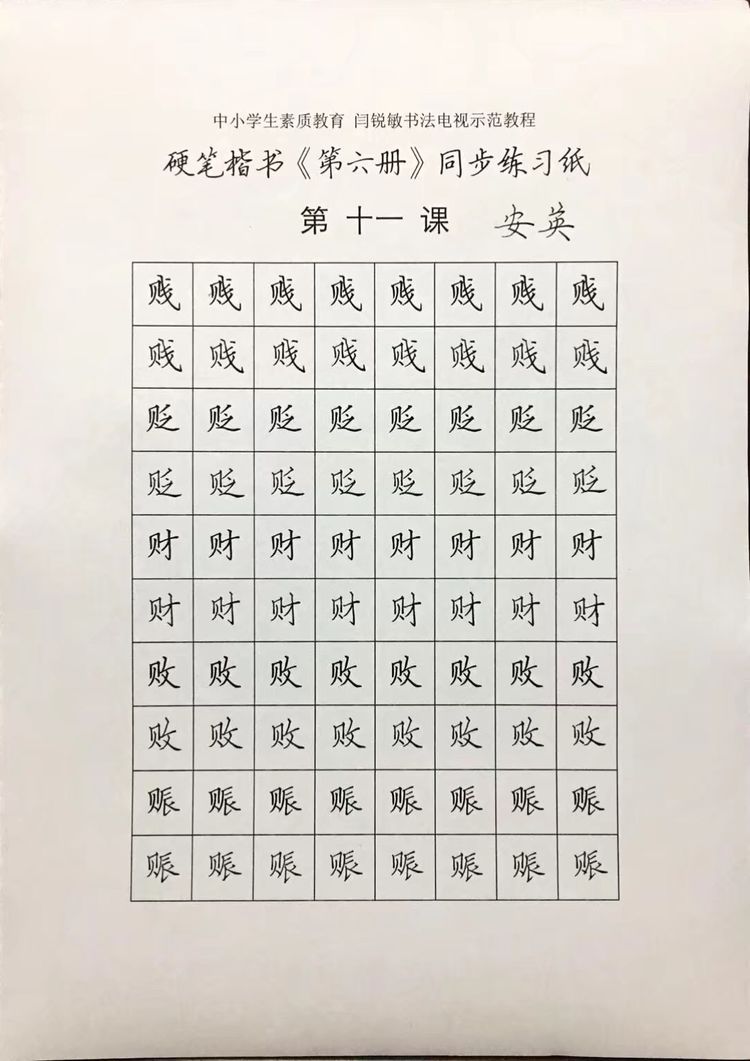 中小学生素质教育 闫锐敏书法电视示范教程
硬笔楷书《第六册》同步练习纸
第 十一 课 安英
贱 贱 贱 贱 贱 贱 贱 贱
贱 贱 贱 贱 贱 贱 贱 贱
贬 贬 贬 贬 贬 贬 贬 贬
贬 贬 贬 贬 贬 贬 贬 贬
财 财 财 财 财 财 财 财
财 财 财 财 财 财 财 财
败 败 败 败 败 败 败 败
败 败 败 败 败 败 败 败
赈 赈 赈 赈 赈 赈 赈 赈
赈 赈 赈 赈 赈 赈 赈 赈